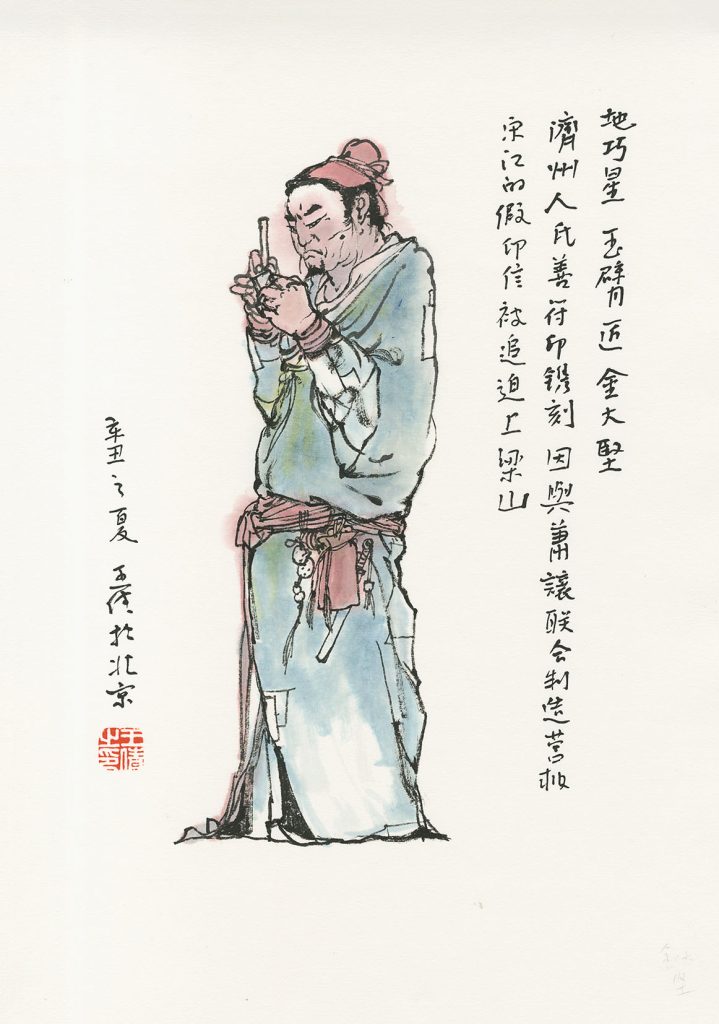 地巧星 玉臂匠 金大堅
濟州人氏善符印鐫刻 因與蕭讓联合制造营救
宋江的假印信被追迫上梁山
辛丑之夏 王倩於北京
王倩之印